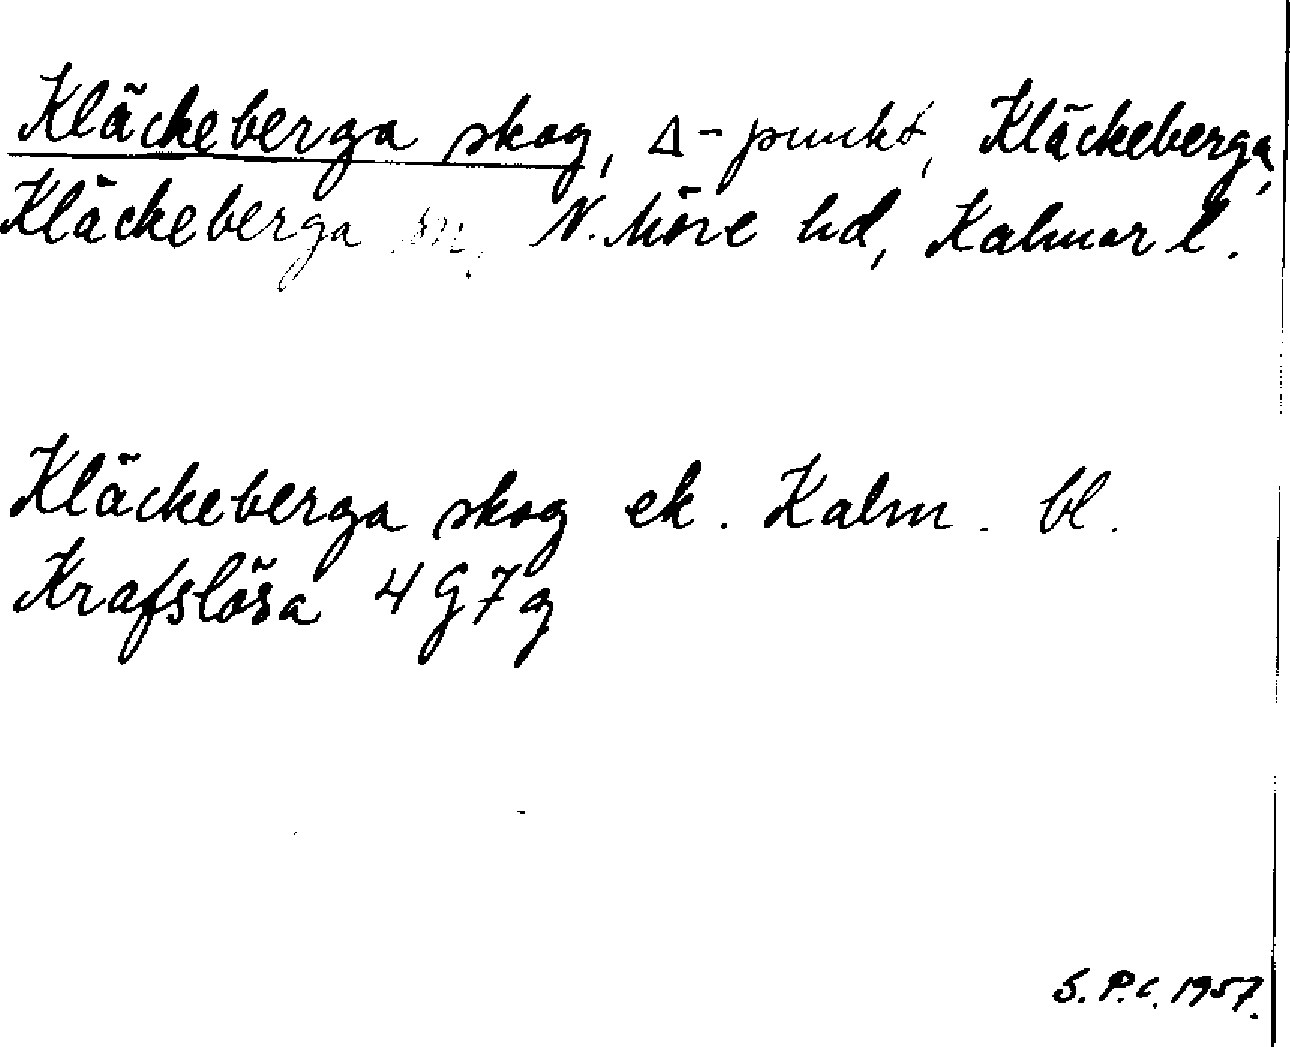 Kläckeberga skog, Δ-punkt, Kläckeberga,
Kläckeberga sn, N. Möre hd, Kalmar l.
Kläckeberga skog ek. Kalm. bl.
Krafslösa 4G7g
S.P.C. 1957.